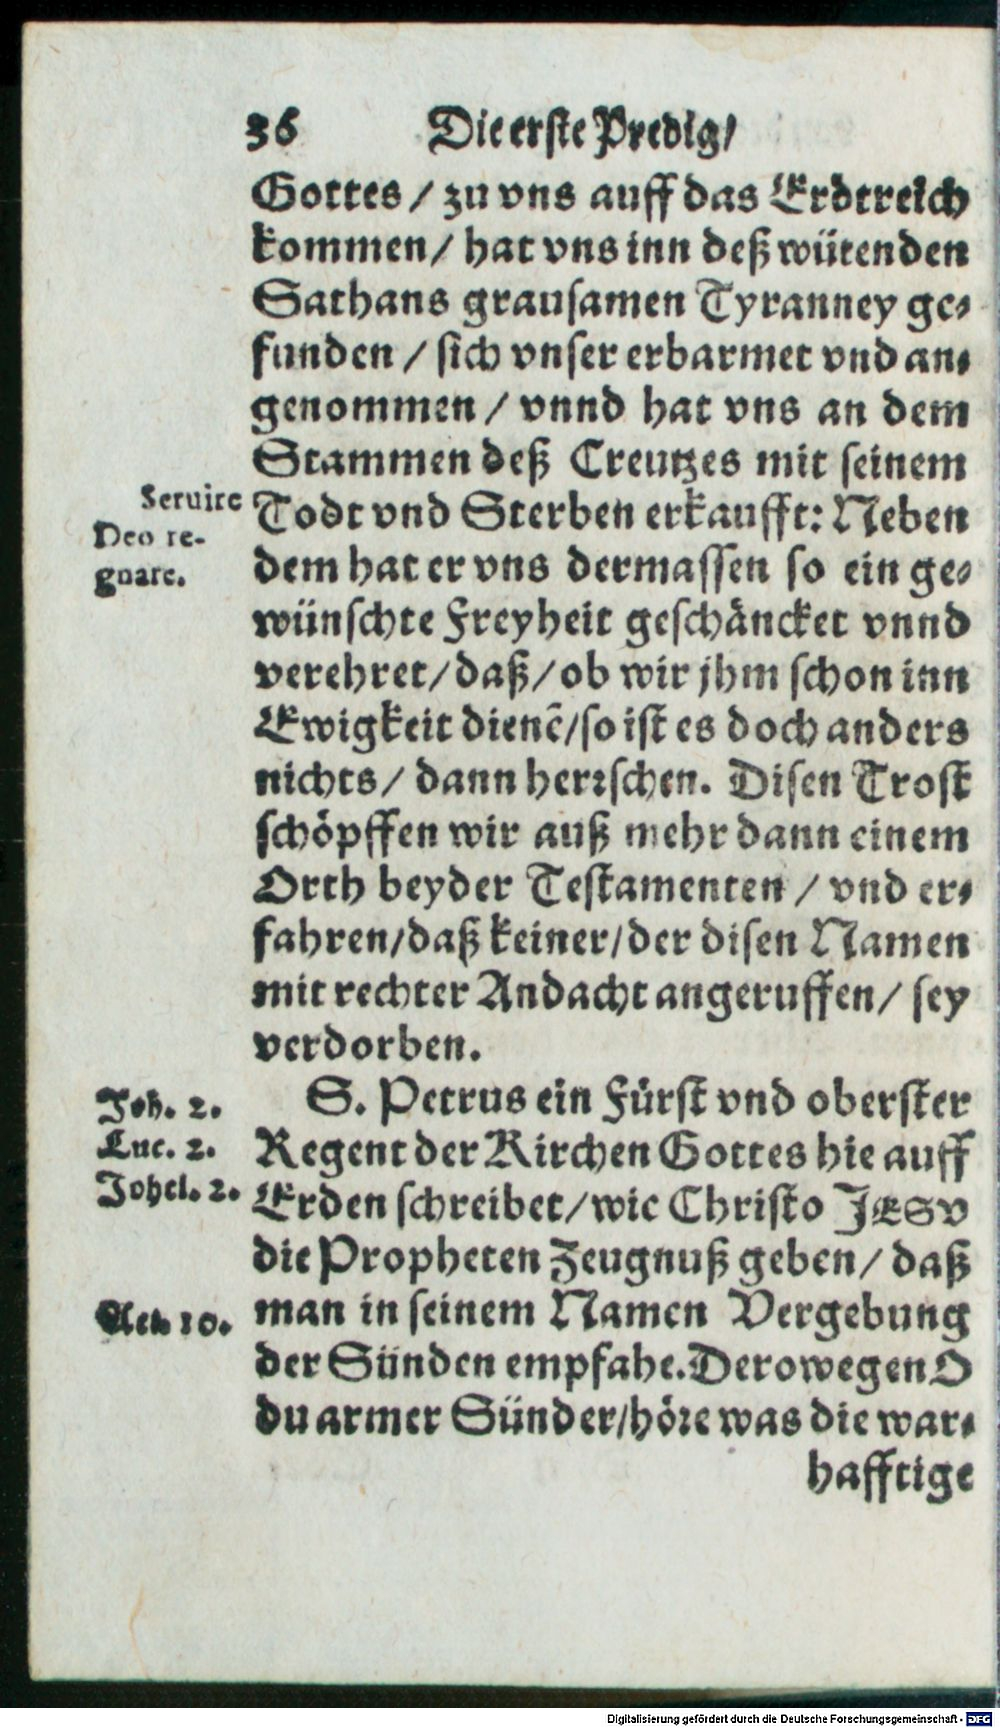 36 Die erste Predig/
Gottes / zu vns auff das Erdtreich
kommen / hat vns inn deß wütenden
Sathans grausamen Tyranney ge-
funden / sich vnser erbarmet vnd an-
genommen / vnnd hat vns an dem
Stammen deß Creutzes mit seinem
Todt vnd Sterben erkaufft: Neben
dem hat er vns dermassen so ein ge-
wünschte Freyheit geschäncket vnnd
verehret / daß / ob wir jhm schon inn
Ewigkeit dienẽ / so ist es doch anders
nichts / dann herrschen. Disen Trost
schöpffen wir auß mehr dann einem
Orth beyder Testamenten / vnd er-
fahren / daß keiner / der disen Namen
mit rechter Andacht angeruffen / sey
verdorben.
Seruire
Deo re-
gnare.
S. Petrus ein Fürst vnd oberster
Regent der Kirchen Gottes hie auff
Erden schreibet / wie Christo JESV
die Propheten Zeugnuß geben / daß
man in seinem Namen Vergebung
der Sünden empfahe. Derowegen O
du armer Sünder / höre was die war-
hafftige
Joh. 2.
Luc. 2.
Johel. 2.
Act. 10.
Digitalisierung gefördert durch die Deutsche Forschungsgemeinschaft - DFG